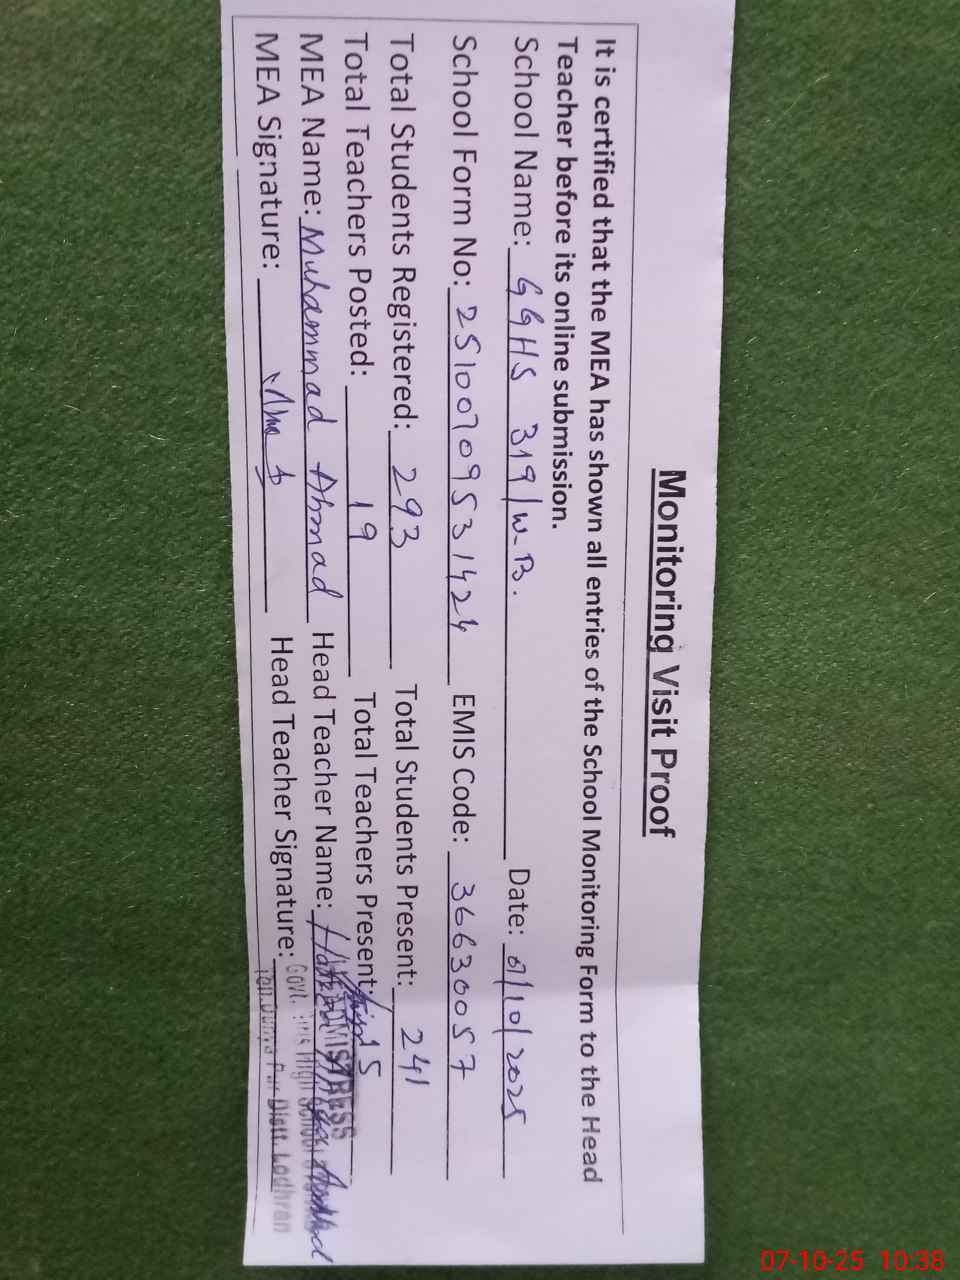 Monitoring Visit Proof
It is certified that the MEA has shown all entries of the School Monitoring Form to the Head
Teacher before its online submission.
School Name: GGHS 319/W-B. Date: /10/2025
School Form No: 25100709531424 EMIS Code: 36630057
Total Students Registered: 293 Total Students Present: 241
Total Teachers Posted: 19 Total Teachers Present: 15
MEA Name: Muhammad Ahmad Head Teacher Name:
MEA Signature: Head Teacher Signature:
Govt. High School
Distt. Lodhran
07-10-25 10:38